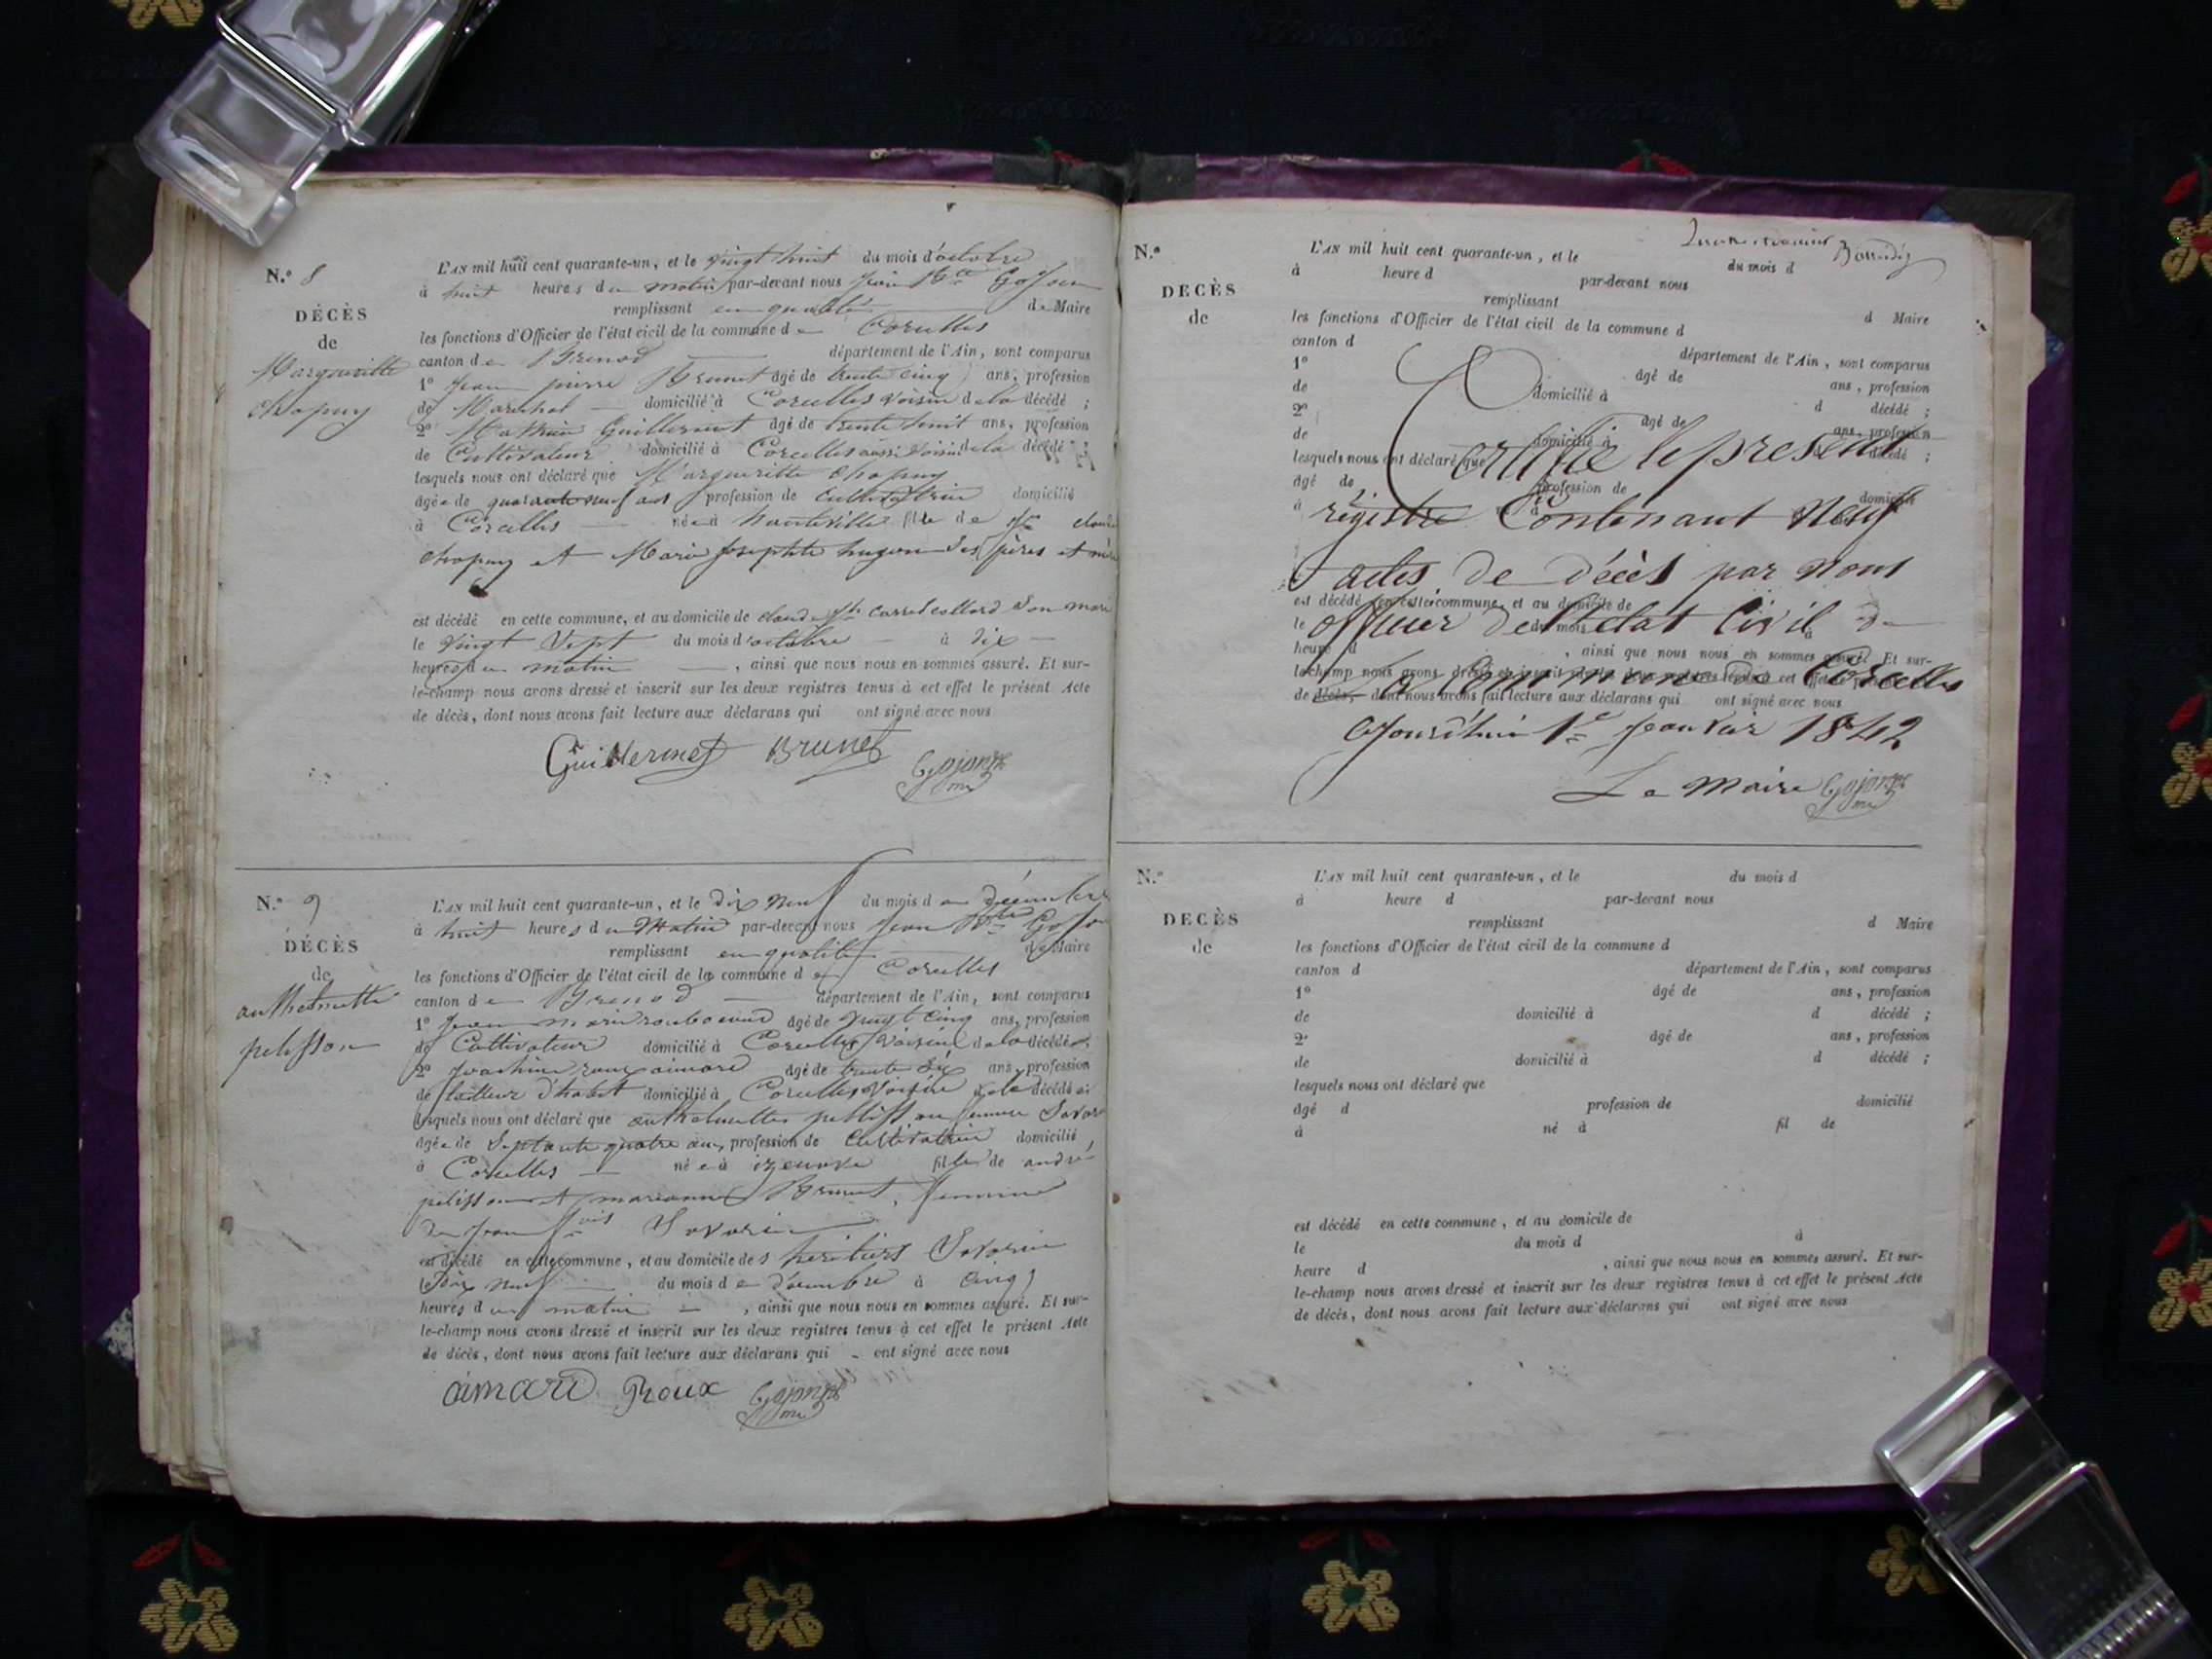 N.° 8
DÉCÈS
de
Margueritte
chapuy
L'AN mil huit cent quarante-un, et le vingt huit du mois d'octobre
à huit heures du matin par-devant nous Jean Bte Gojon
remplissant en qualité de Maire
les fonctions d'Officier de l'état civil de la commune de Corcelles
canton de Brenod département de l'Ain, sont comparus
1° Jean pierre Brunet âgé de trente cinq ans, profession
de Marechal domicilié à Corcelles voisin de la décédé ;
2° Mathieu Guillermet âgé de trente huit ans, profession
de Cultivateur domicilié à Corcelles aussi voisin de la décédé
lesquels nous ont déclaré que Margueritte chapuy
âgée de quarante neuf ans profession de cultivatrice domicilié
à Corcelles née à hauteville fille de
chapuy et Marie Josephte hugon ses pères et mère
est décédé en cette commune, et au domicile de claude Carrel collard son mari
le vingt Sept du mois d'octobre à dix
heures du matin , ainsi que nous nous en sommes assuré. Et sur-
le-champ nous avons dressé et inscrit sur les deux registres tenus à cet effet le présent Acte
de décès, dont nous avons fait lecture aux déclarans qui ont signé avec nous
Guillermet Brunet Gojon
N.° 9
DÉCÈS
de
anthelmette
pelisson
L'AN mil huit cent quarante-un, et le dix neuf du mois de décembre
à huit heures du Matin par-devant nous Jean Bte Gojon
remplissant en qualité de Maire
les fonctions d'Officier de l'état civil de la commune de Corcelles
canton de Brenod département de l'Ain, sont comparus
1° Jean marie âgé de vingt cinq ans, profession
de Cultivateur domicilié à Corcelles voisin de la décédée
2° Joachim roux aimard âgé de trente six ans, profession
de tailleur d'habit domicilié à Corcelles voisin de la décédé
lesquels nous ont déclaré que anthelmette pellisson femme Savarin
âgée de Septante quatre ans, profession de Cultivatrice domicilié,
à Corcelles née à izenave fille de andré
pelisson et marianne Brunet, femme
de Jean fois Savarin
est décédé en cette commune, et au domicile des heritiers Savarin
le Dix neuf du mois de décembre à Cinq
heures du matin , ainsi que nous nous en sommes assuré. Et sur-
le-champ nous avons dressé et inscrit sur les deux registres tenus à cet effet le présent Acte
de décès, dont nous avons fait lecture aux déclarans qui ont signé avec nous
amard Roux Gojon
N.°
DECÈS
de
L'AN mil huit cent quarante-un, et le du mois d
à heure d par-devant nous
remplissant d Maire
les fonctions d'Officier de l'état civil de la commune d
canton d département de l'Ain, sont comparus
1° âgé de ans, profession
de domicilié à d décédé ;
2° âgé de ans, profession
de domicilié à décédé ;
lesquels nous ont déclaré que
âgé de profession de domicilié
Certifié le present
registre Contenant Neuf
actes de décès par nous
officier de l'etat Civil de
la Commune de Corcelles
est décédé en cette commune, et au domicile de
le du mois à
heure d , ainsi que nous nous en sommes assuré. Et sur-
le-champ nous avons dressé et inscrit sur les deux registres tenus à cet effet le présent Acte
de décès, dont nous avons fait lecture aux déclarans qui ont signé avec nous
ajourd'hui 1er janvier 1842
Le Maire Gojon
N.°
DECÈS
de
L'AN mil huit cent quarante-un, et le du mois d
à heure d par-devant nous
remplissant d Maire
les fonctions d'Officier de l'état civil de la commune d
canton d département de l'Ain, sont comparus
1° âgé de ans, profession
de domicilié à d décédé ;
2° âgé de ans, profession
de domicilié à d décédé ;
lesquels nous ont déclaré que
âgé d profession de domicilié
à né à fil de
est décédé en cette commune, et au domicile de
le du mois d à
heure d , ainsi que nous nous en sommes assuré. Et sur-
le-champ nous avons dressé et inscrit sur les deux registres tenus à cet effet le présent Acte
de décès, dont nous avons fait lecture aux déclarans qui ont signé avec nous